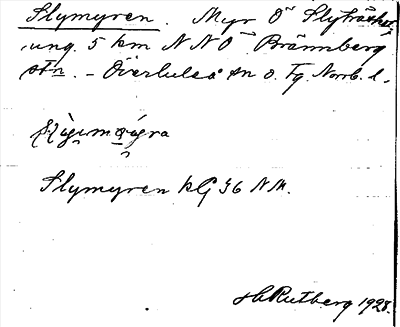 Slymyren. Myr O Slyträsket,
ung. 5 km NNO Brännberg
stn. - Överluleå sn o. Tg. Norrb. l.
Slymyren kG 36 NM.
H Rutberg 1928.